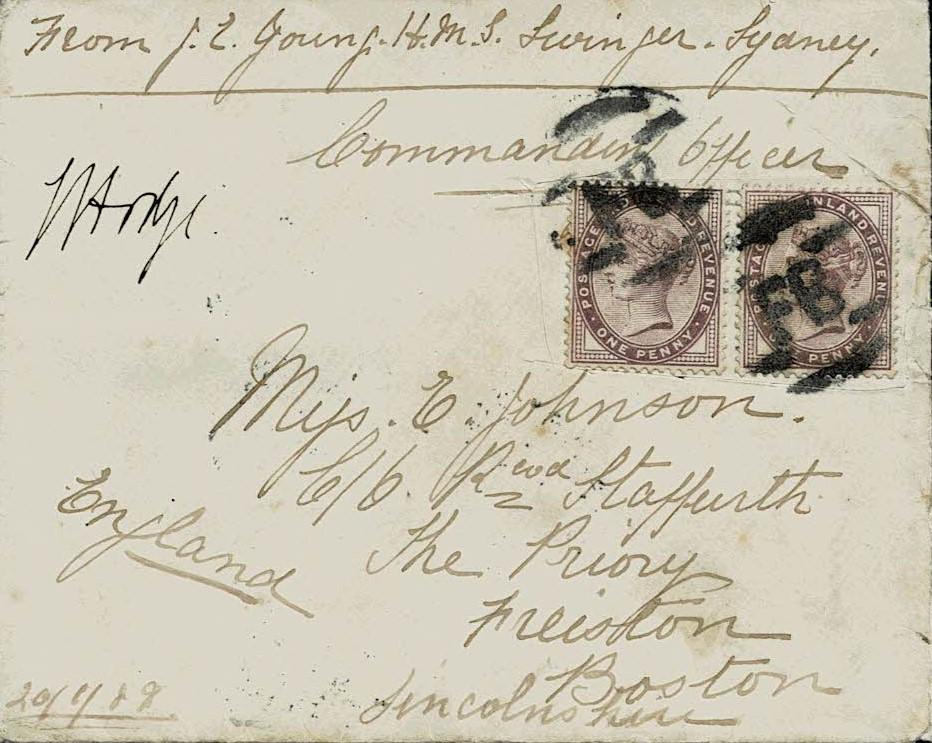 From J. E. Young. H.M.S. Swinger. Sydney.
Commanding Officer
POSTAGE AND INLAND REVENUE
ONE PENNY
POSTAGE INLAND REVENUE
PENNY
FB
Miss. E. Johnson.
C/o. Revd Staffurth
England
The Priory
Freiston
Boston
Lincolnshire